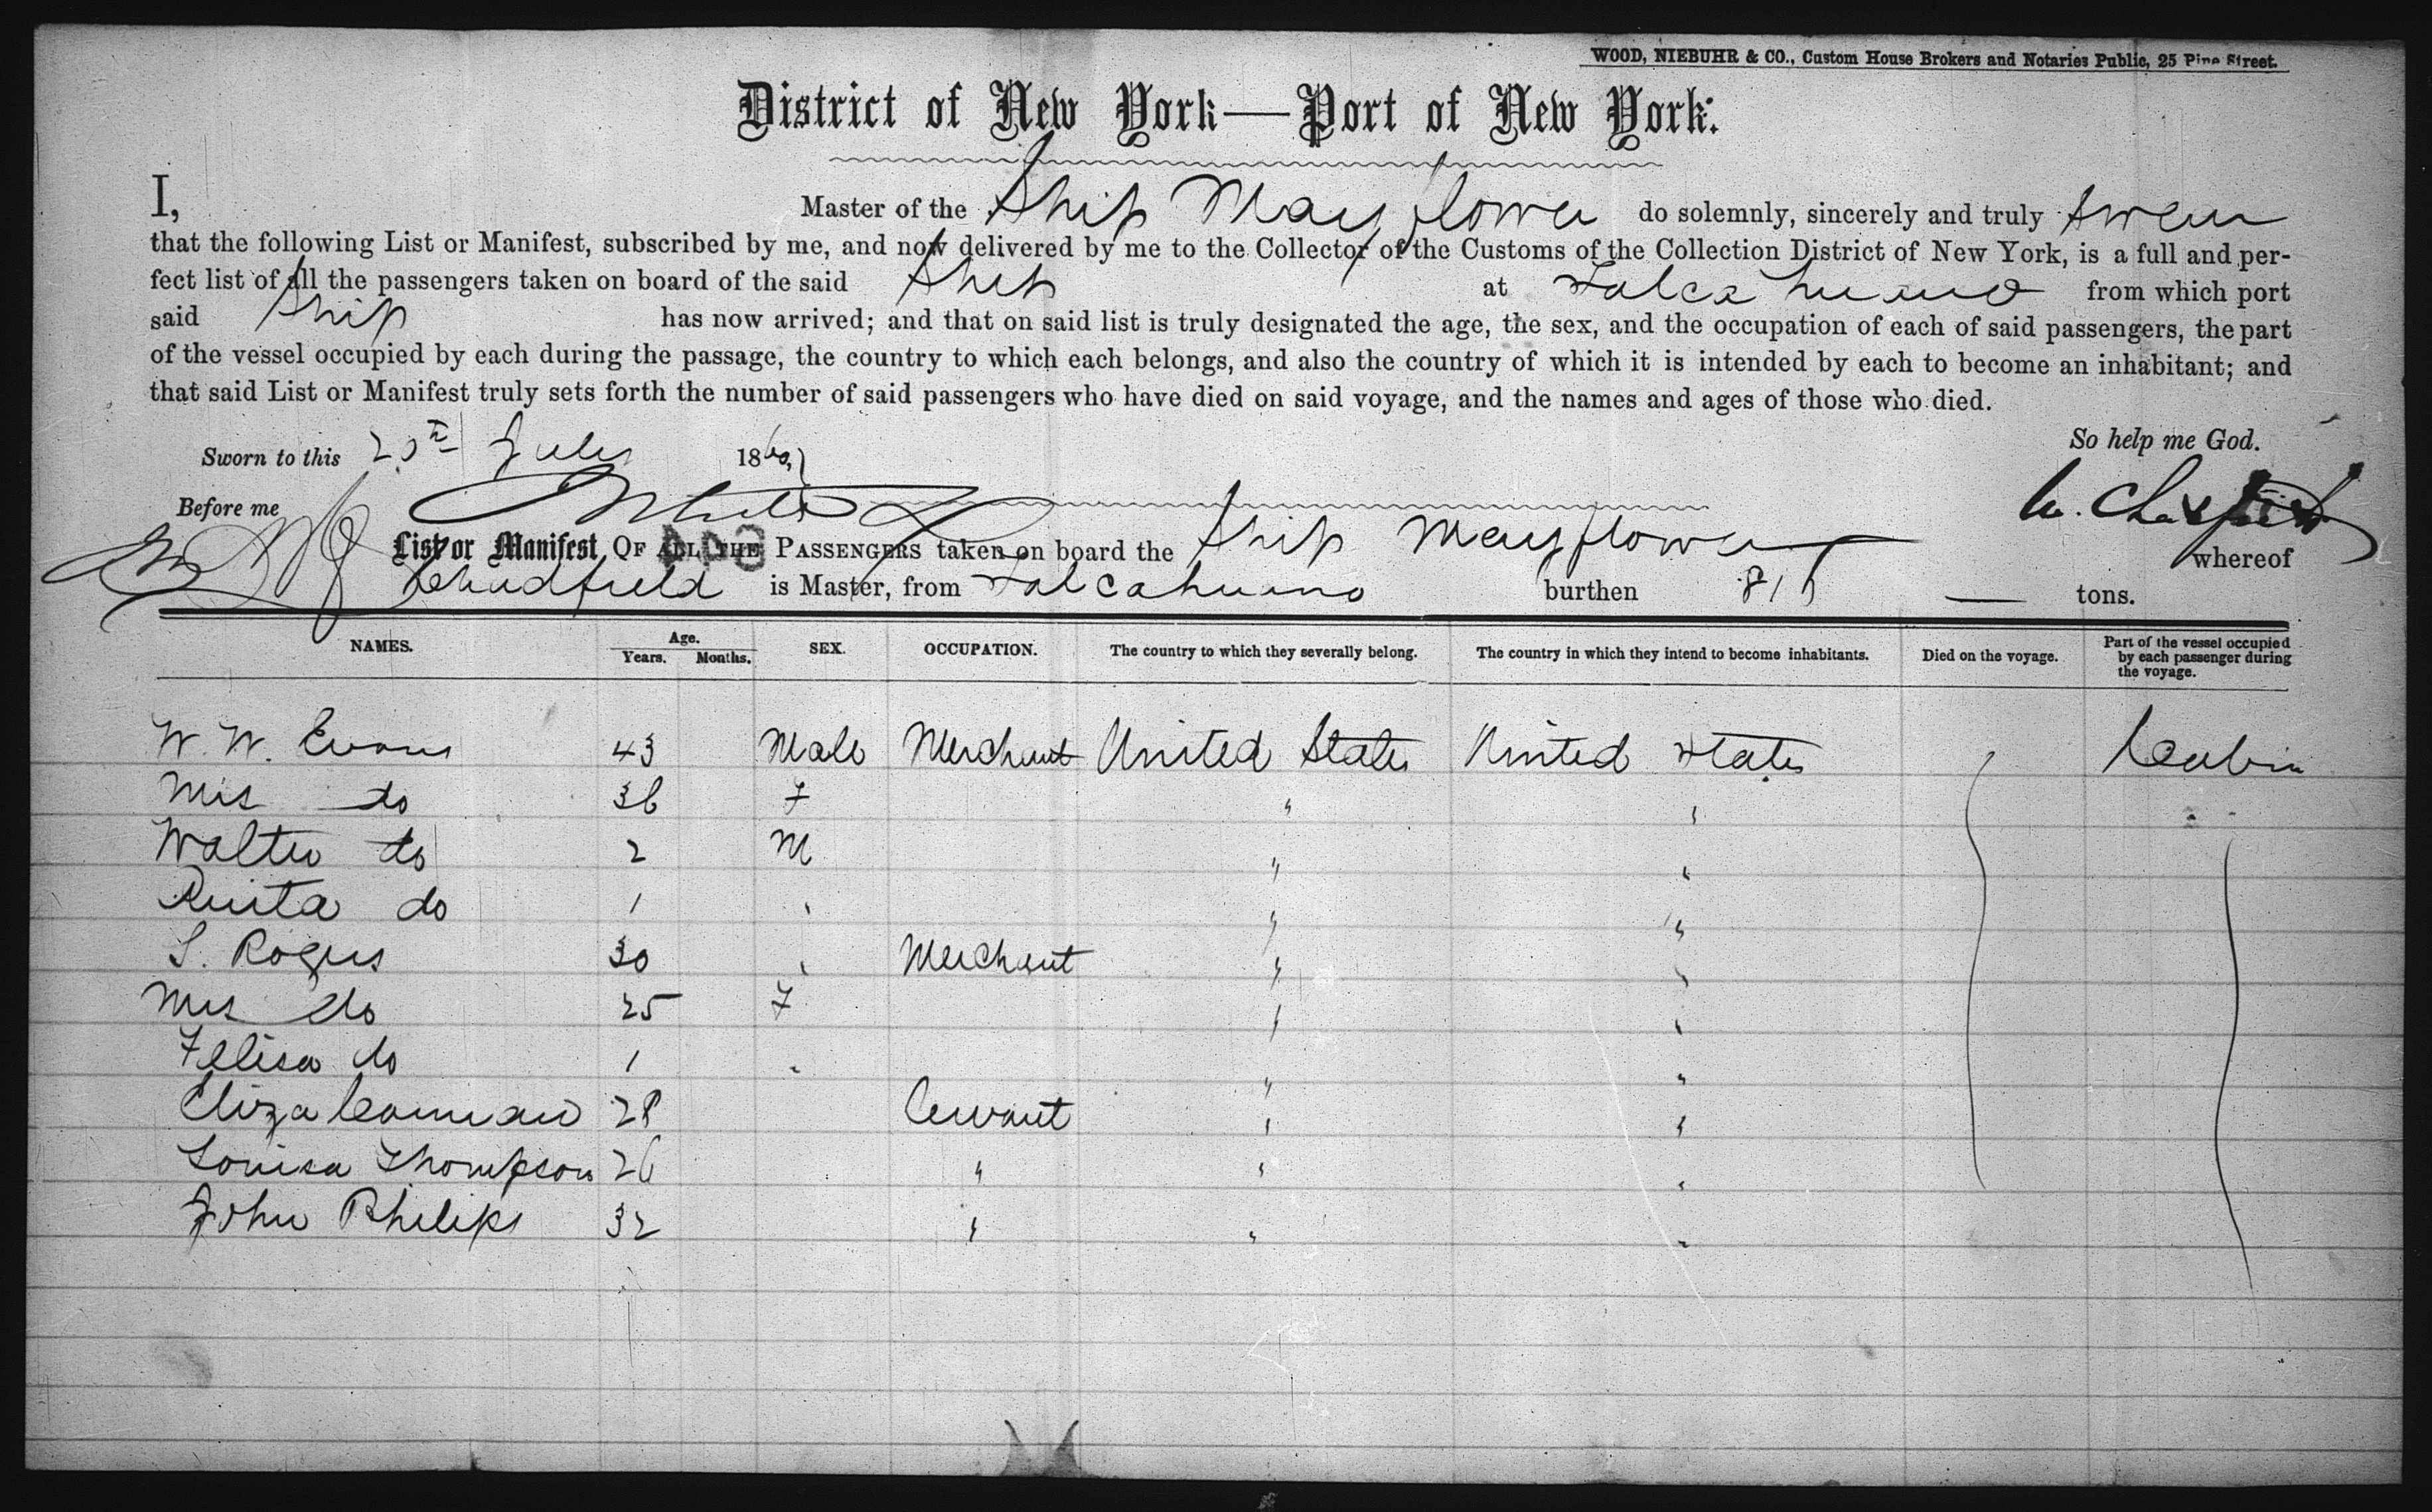 WOOD, NIEBUHR & CO., Custom House Brokers and Notaries Public, 25 Pine Street.
District of New York—Port of New York:
I, Master of the Ship Mayflower do solemnly, sincerely and truly swear
that the following List or Manifest, subscribed by me, and now delivered by me to the Collector of the Customs of the Collection District of New York, is a full and per-
fect list of all the passengers taken on board of the said Ship at Talcahuano from which port
said Ship has now arrived; and that on said list is truly designated the age, the sex, and the occupation of each of said passengers, the part
of the vessel occupied by each during the passage, the country to which each belongs, and also the country of which it is intended by each to become an inhabitant; and
that said List or Manifest truly sets forth the number of said passengers who have died on said voyage, and the names and ages of those who died.
So help me God.
Sworn to this July 186
Before me
List or Manifest, OF ALL THE PASSENGERS taken on board the Ship Mayflower whereof
is Master, from Talcahuano burthen tons.
NAMES. Age. Years. Months. SEX. OCCUPATION. The country to which they severally belong. The country in which they intend to become inhabitants. Died on the voyage. Part of the vessel occupied by each passenger during the voyage.
W. W. Evans 43 Male Merchant United States United States Cabin
Mrs do 36 F " "
Walter do 2 M " "
Anita do 1 " " "
S. Rogers 30 " Merchant " "
Mrs do 25 F " "
Felisa do 1 " " "
Eliza 28 Cervant " "
Louisa Thompson 26 " " "
John Philips 32 " " "